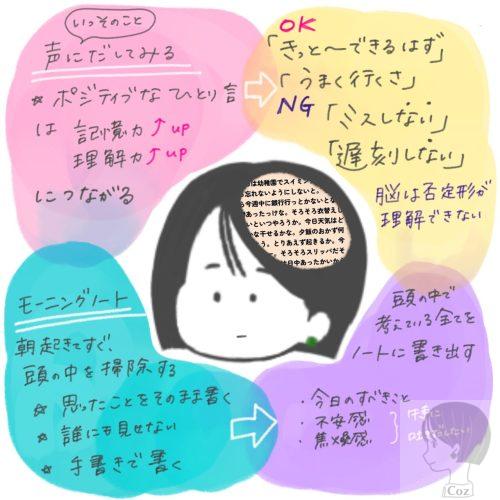 いっそのこと
声にだしてみる
☆ ポジティブなひとり言
は 記憶力↑up
理解力↑up
につながる
OK
「きっと〜できるはず」
「うまく行くさ」
NG 「ミスしない」
「遅刻しない」
脳は否定形が
理解できない
は幼稚園でスイミン
忘れないようにしないと。
今週中に銀行行っとかないとな
あったっけな。そろそろ衣替えし
いといつやろうか。今日天気はど
かな干せるかな。夕飯のおかず何
う。とりあえず起きるか。今
。そろそろスリッパだそ
は日中あったかいか
モーニングノート
朝起きてすぐ、
頭の中を掃除する
☆ 思ったことをそのまま書く
☆ 誰にも見せない
☆ 手書きで書く
頭の中で
考えている全てを
ノートに書き出す
・今日のすべきこと
・不安感
・焦燥感
Coz